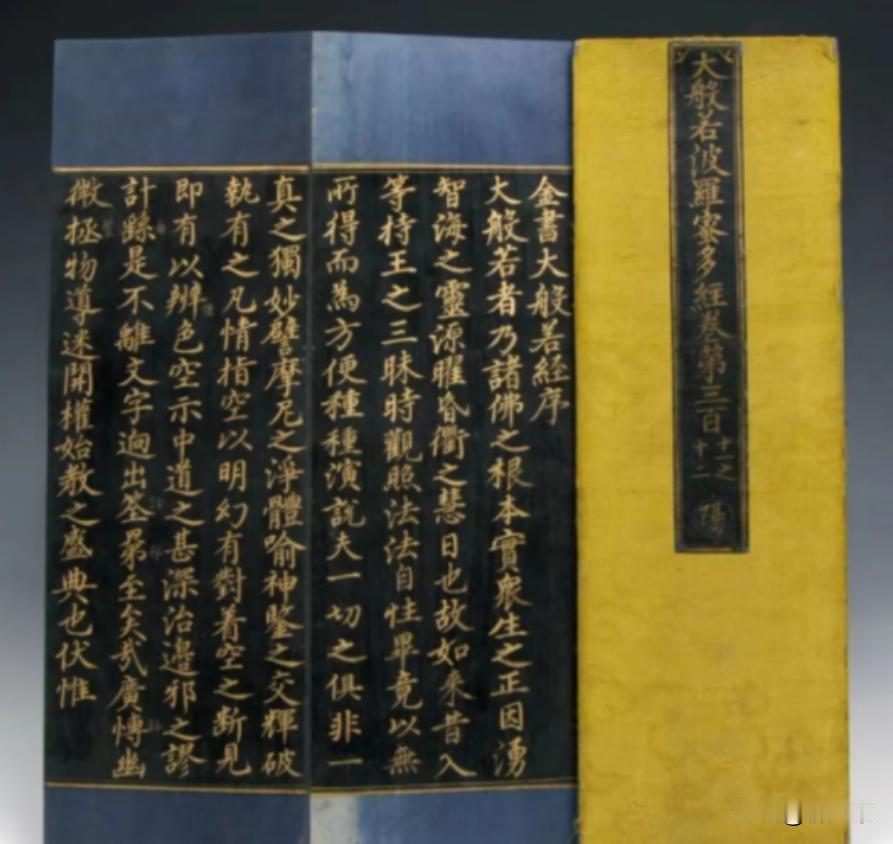 大般若波羅蜜多經卷第三百
十一之
十二
陽
金書大般若經序
大般若者乃諸佛之根本實衆生之正因湧
智海之靈源曜昏衢之慧日也故如来昔入
等持王之三昧時觀照法法自性畢竟以無
所得而為方便種種演説夫一切之俱非一
真之獨妙譬摩尼之淨體喻神鑒之交輝破
執有之凡情指空以明幻有對着空之断見
即有以辨色空示中道之甚深治邉邪之謬
計繇是不離文字逈出筌罤至矣㢤廣愽幽
微拯物導迷開權始教之盛典也伏惟